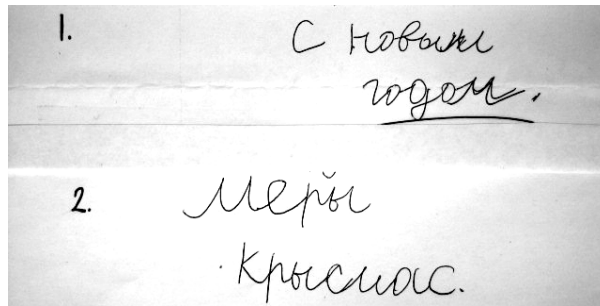 1. С новым
годом.
2. Меры̆
Крысмас.